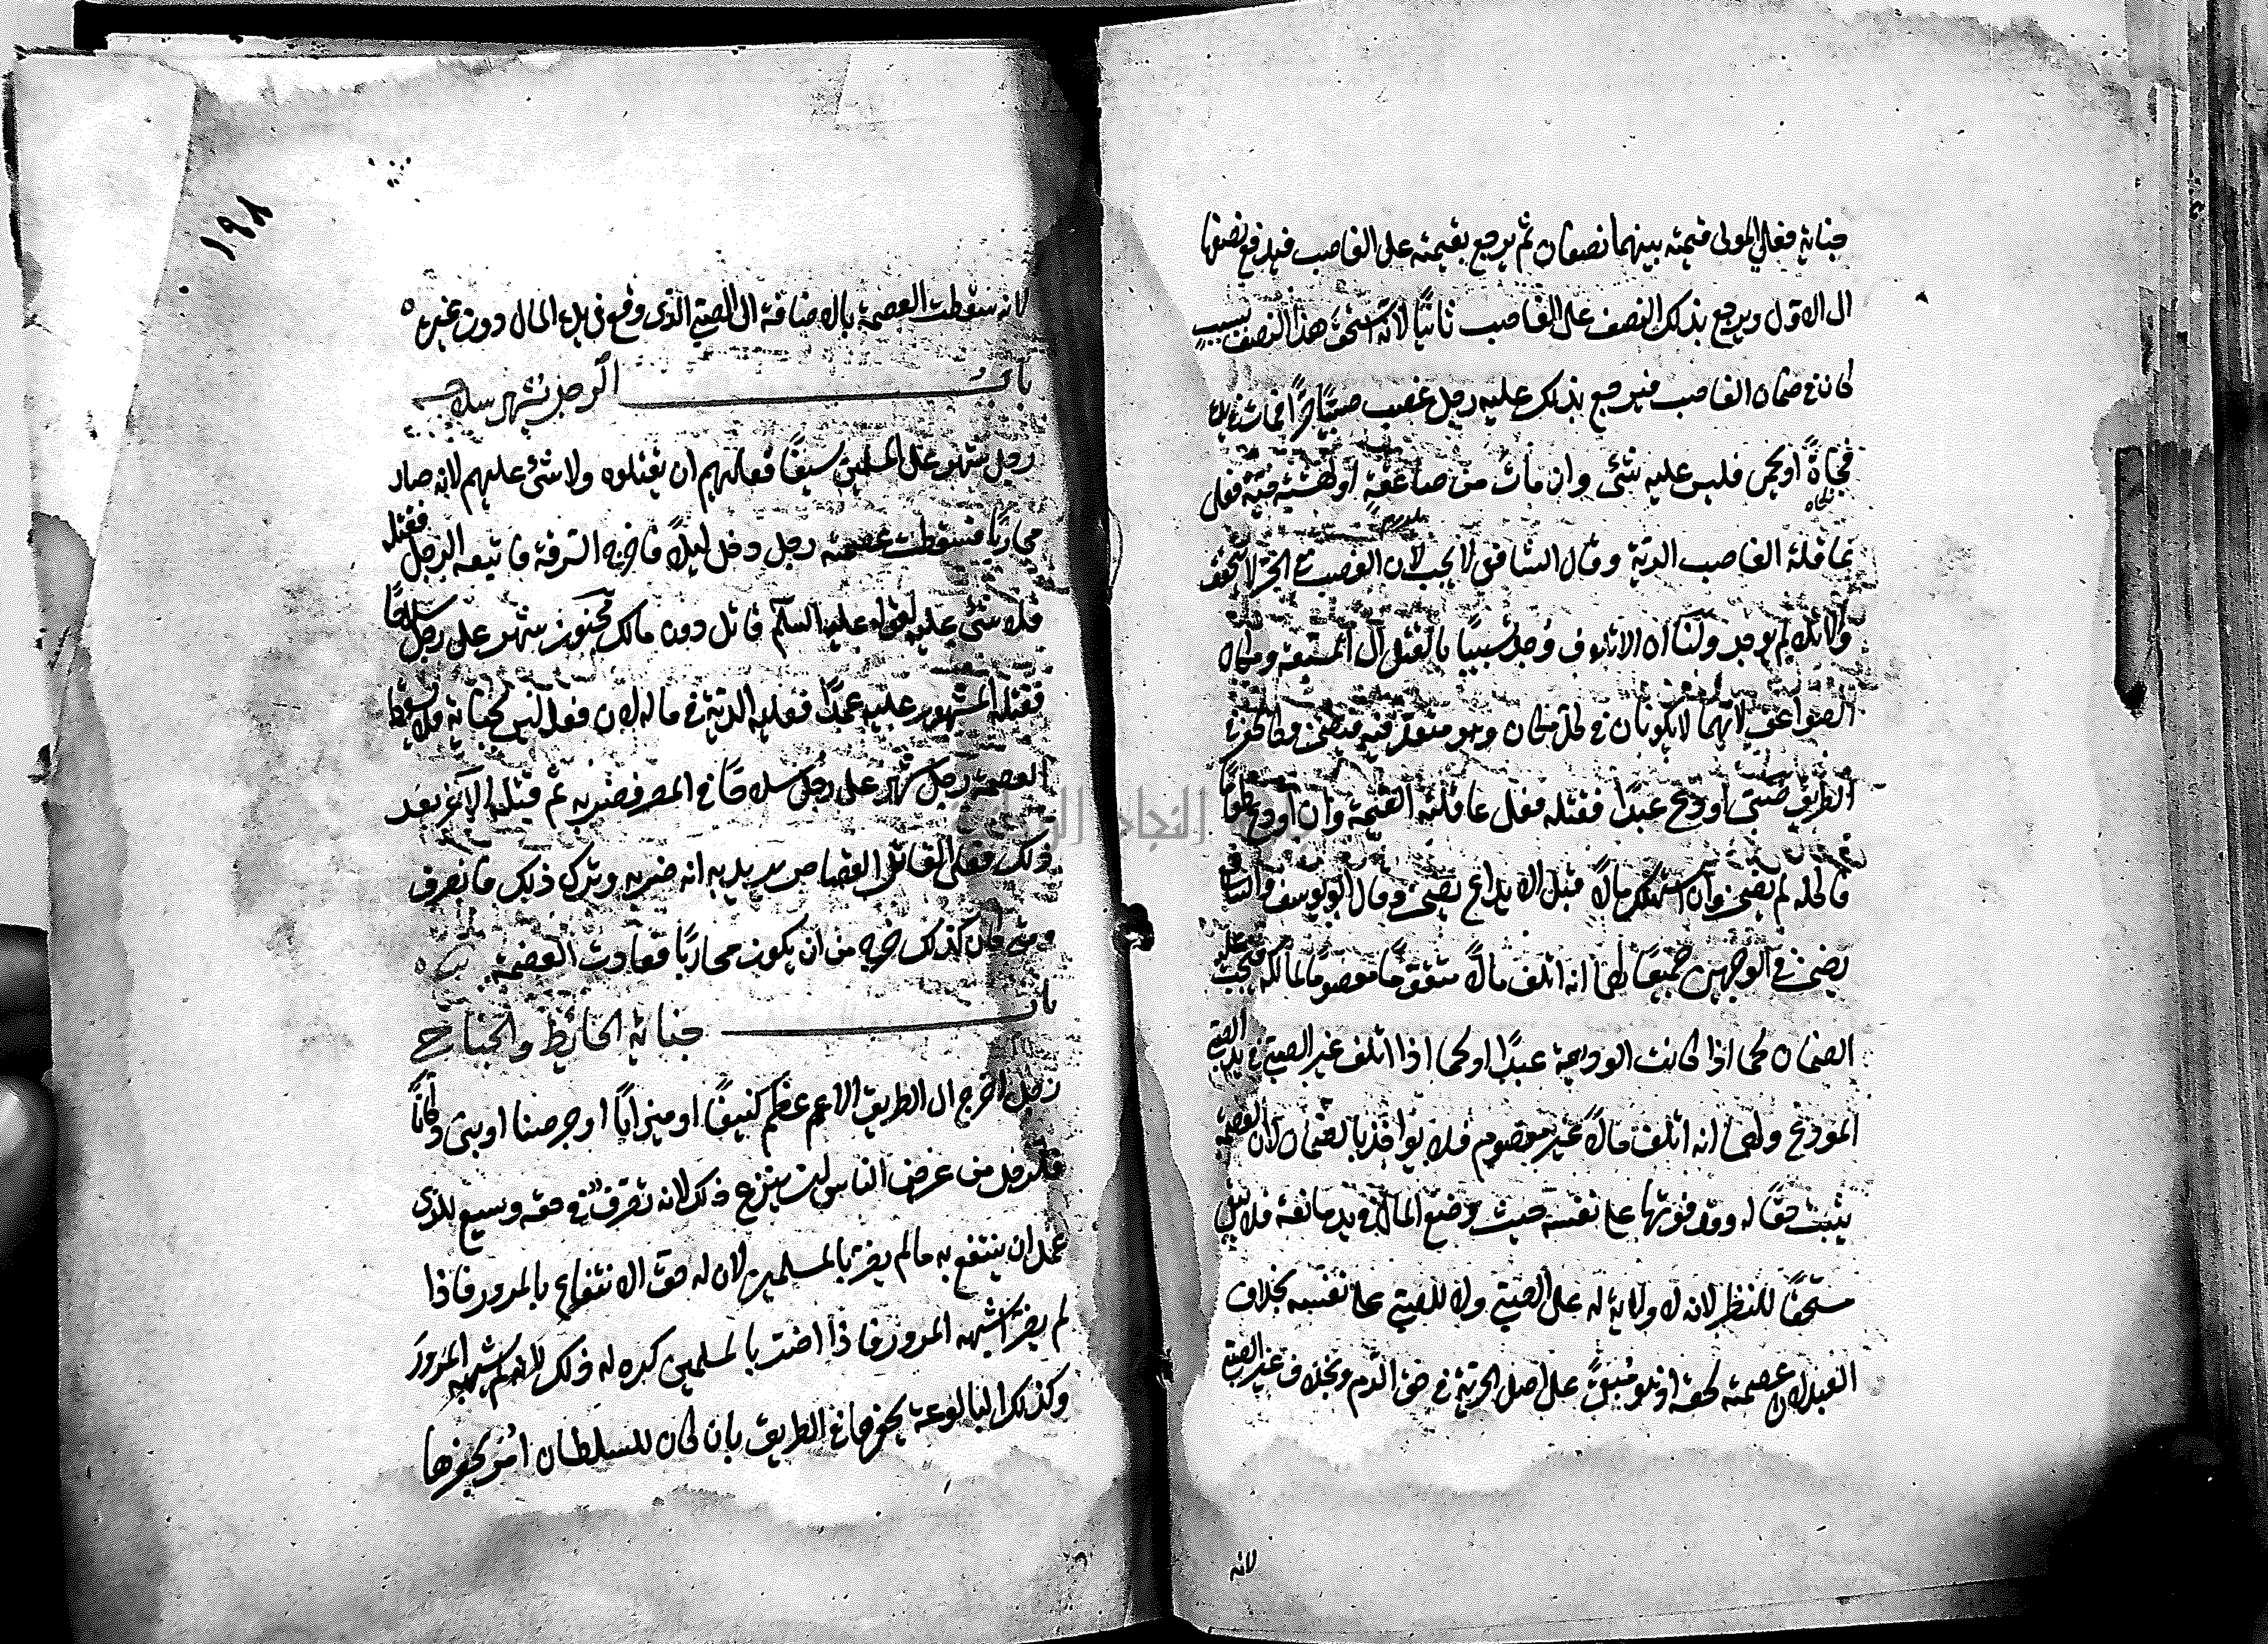 جناية فعلى المولى قيمته بينهما نصفان ثم يرجع بقيمته على الغاصب فيدفع نصفها
الى الاول ويرجع بذلك النصف على الغاصب ثانيا لانه استحق هذا النصف بسبب
كان في ضمان الغاصب فيرجع بذلك عليه رجل غصب صبيًا حرًا فمات في يده
فجاةً او بحمى فليس عليه شئ وان مات من صاعقة او نهشته حية فعلى
عاقلة الغاصب الدية وقال الشافعي لا يجب لان الغصب في الحر لا يتحقق
والاتلاف لم يوجد ولنا ان الاتلاف وجد تسبيبًا بالنقل الى المسبعة ومكان
الصواعق لانهما لا يكونان في كل مكان وهو متعد فيه فيضمن كالحفر في
الطريق صبي اودع عبدًا فقتله فعلى عاقلته القيمة وان اودع طعامًا
فاكله لم يضمن وان استهلك مالا قبل الايداع يضمن وقال ابو يوسف والشافعي
يضمن في الوجهين جميعًا لهما انه اتلف مالًا متقومًا معصومًا لمالكه فيجب عليه
الضمان كما اذا كانت الوديعة عبدًا او كما اذا اتلف غير الصبي في يد الصبي
المودع ولهما انه اتلف مالًا غير معصوم فلا يؤاخذ بالضمان لان العصمة
يثبت حقًا له وقد فوتها على نفسه حيث وضع المال في يد مانعة فلا يبقى
مستحقًا للنظر لانه لا ولاية له على الصبي ولا للصبي على نفسه بخلاف
العبد لان عصمته لحقه اذ هو مبقى على اصل الحرية في حق الدم وبخلاف غير الصبي
لانه
١٩٨
لانه سقطت العصمة بالاضافة الى الصبي الذي وقع في يده المال دون غيره
باب الرجل يشهر سلاحه
رجل شهر على المسلمين سيفًا فعليهم ان يقتلوه ولا شئ عليهم لانه صار
محاربًا فسقطت عصمته رجل دخل ليلًا فاخرج السرقة فاتبعه الرجل فقتله
فلا شئ عليه لقوله عليه السلم قاتل دون مالك مجنون شهر على رجل سلاحًا
فقتله المشهور عليه عمدًا فعليه الدية في ماله لان فعله ليس بجناية فلا يسقط
العصمة رجل شهر على رجل سلاحًا في المصر فضربه ثم قتله الاخر بعد
ذلك فعلى القاتل القصاص يريد به انه ضربه وترك ذلك فانصرف
ومتى كان كذلك خرج من ان يكون محاربًا فعادت العصمة
باب جناية الحائط والجناح
رجل اخرج الى الطريق الاعظم كنيفًا او ميزابًا او جرصنا او بنى دكانًا
فلرجل من عرض الناس ان ينزع ذلك لانه تصرف في حقه وسيع للذي
عمله ان ينتفع به ما لم يضر بالمسلمين لان له حق الانتفاع بالمرور فاذا
لم يضر اشبه المرور فاذا اضر بالمسلمين كره له ذلك لانه لم يشبه المرور
وكذلك البالوعة يحفرها في الطريق بان كان للسلطان امر بحفرها